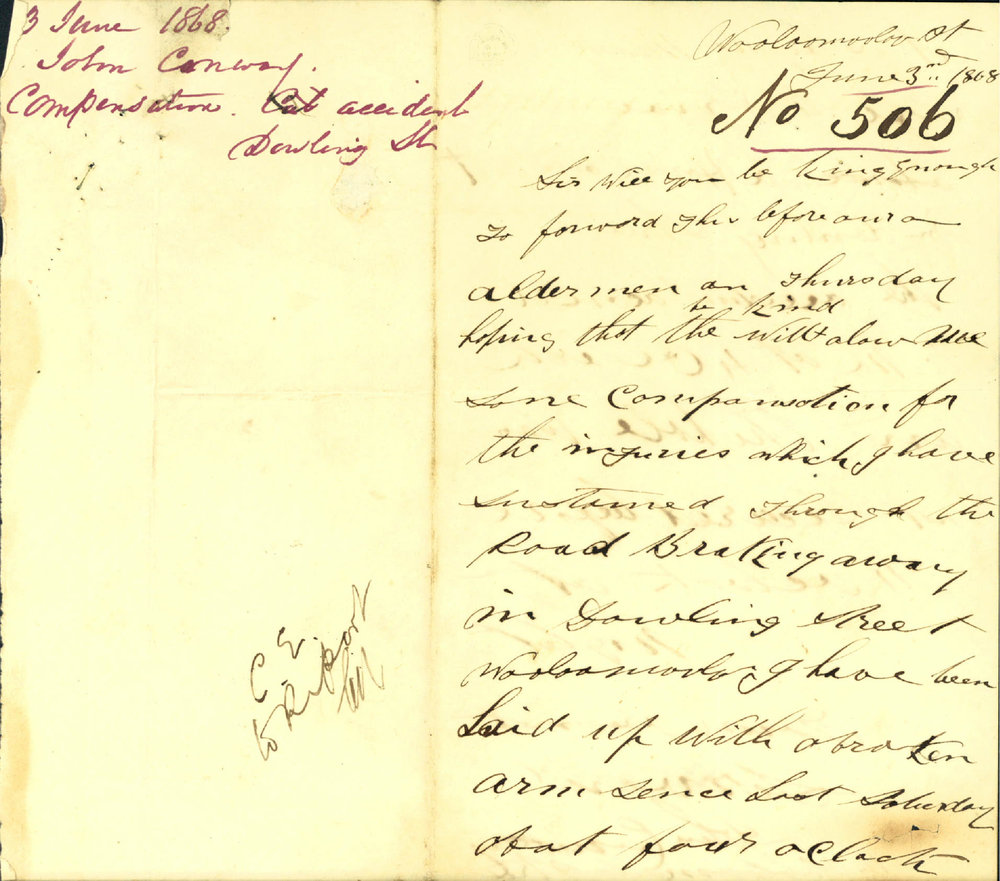 3 June 1868.
John Conway.
Compensation. Cab accident
Dowling St
C E
to Report
Wooloomooloo St
June 3nd 1868
No 506
Sir Will you be King Enough
To forward this before
aldermen on Thursday
be kind
hoping that the Will alow me
some Compansation for
the injuries which I have
sustained through the
Road Braking away
in Dowling Street
Wooloomooloo I have been
Laid up With abroken
arm sence Last Saturday
abat four oClock